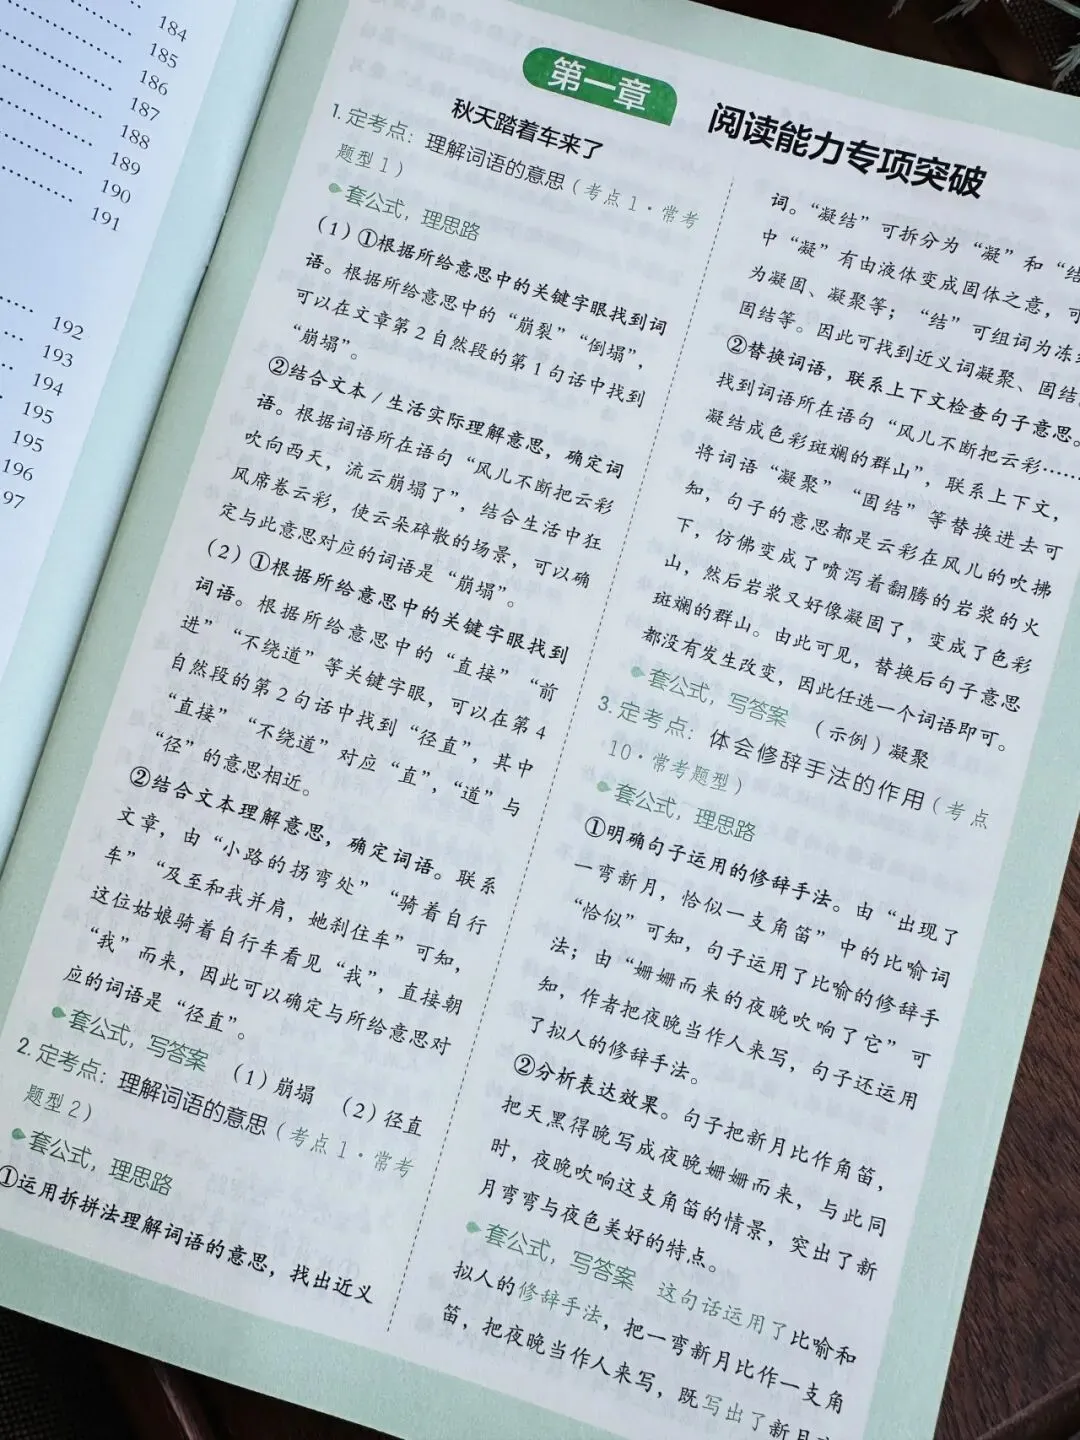 184
185
186
187
188
189
190
191
192
193
194
195
195
196
97
第一章 阅读能力专项突破
秋天踏着车来了
1. 定考点：理解词语的意思（考点1·常考
题型1）
套公式，理思路
（1）①根据所给意思中的关键字眼找到词
语。根据所给意思中的“崩裂”“倒塌”，
可以在文章第2自然段的第1句话中找到
“崩塌”。
②结合文本/生活实际理解意思，确定词
语。根据词语所在语句“风儿不断把云彩
吹向西天，流云崩塌了”，结合生活中狂
风席卷云彩，使云朵碎散的场景，可以确
定与此意思对应的词语是“崩塌”。
（2）①根据所给意思中的关键字眼找到
词语。根据所给意思中的“直接”“前
进”“不绕道”等关键字眼，可以在第4
自然段的第2句话中找到“径直”，其中
“直接”“不绕道”对应“直”，“道”与
“径”的意思相近。
②结合文本理解意思，确定词语。联系
文章，由“小路的拐弯处”“骑着自行
车”“及至和我并肩，她刹住车”可知，
这位姑娘骑着自行车看见“我”，直接朝
“我”而来，因此可以确定与所给意思对
应的词语是“径直”。
套公式，写答案 （1）崩塌 （2）径直
2. 定考点：理解词语的意思（考点1·常考
题型2）
套公式，理思路
①运用拆拼法理解词语的意思，找出近义
词。“凝结”可拆分为“凝”和“结
中“凝”有由液体变成固体之意，可
为凝固、凝聚等；“结”可组词为冻
固结等。因此可找到近义词凝聚、固结
②替换词语，联系上下文检查句子意思。
找到词语所在语句“风儿不断把云彩……
凝结成色彩斑斓的群山”，联系上下文，
将词语“凝聚”“固结”等替换进去可
知，句子的意思都是云彩在风儿的吹拂
下，仿佛变成了喷泻着翻腾的岩浆的火
山，然后岩浆又好像凝固了，变成了色彩
斑斓的群山。由此可见，替换后句子意思
都没有发生改变，因此任选一个词语即可。
套公式，写答案 （示例）凝聚
3. 定考点：体会修辞手法的作用（考点
10·常考题型）
套公式，理思路
①明确句子运用的修辞手法。由“出现了
一弯新月，恰似一支角笛”中的比喻词
“恰似”可知，句子运用了比喻的修辞手
法；由“姗姗而来的夜晚吹响了它”可
知，作者把夜晚当作人来写，句子还运用
了拟人的修辞手法。
②分析表达效果。句子把新月比作角笛，
把天黑得晚写成夜晚姗姗而来，与此同
时，夜晚吹响这支角笛的情景，突出了新
月弯弯与夜色美好的特点。
套公式，写答案 这句话运用了比喻和
拟人的修辞手法，把一弯新月比作一支角
笛，把夜晚当作人来写，既写出了新月